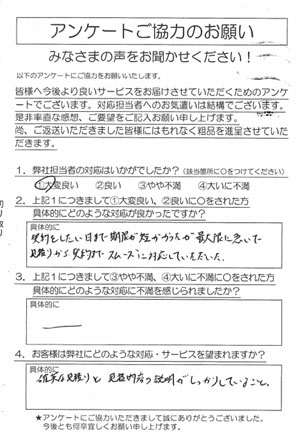 アンケートご協力のお願い
みなさまの声をお聞かせください！
以下のアンケートにご協力をお願いいたします。
皆様へ今後より良いサービスをお届けさせていただくためのアンケ
ートでございます。対応担当者へのお気遣いは結構でございます。
是非率直な感想、ご要望をご記入お願い申し上げます。
尚、ご返送いただきました皆様にはもれなく粗品を進呈させていた
だきます。
1．弊社担当者の対応はいかがでしたか？（該当箇所に○をつけてください）
①大変良い　②良い　③やや不満　④大いに不満
2．上記1につきまして①大変良い、②良いに○をされた方
具体的にどのような対応が良かったですか？
具体的に
契約をしたい日まで期限が短かかったが最大限に急いで
見積りから契約まで スムーズに対応していただいた。
3．上記1につきまして③やや不満、④大いに不満に○をされた方
具体的にどのような対応に不満を感じられましたか？
具体的に
4．お客様は弊社にどのような対応・サービスを望まれますか？
具体的に
見積りと 説明がしっかりしていること。
★アンケートにご協力いただきまして誠にありがとうございました。
今後とも何卒宜しくお願い申し上げます。